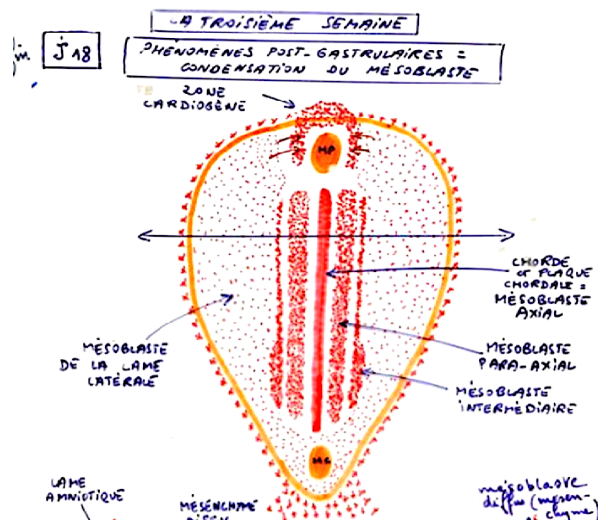 LA TROISIÈME SEMAINE
fin J18
PHÉNOMÈNES POST-GASTRULAIRES =
CONDENSATION DU MÉSOBLASTE
ZONE
CARDIOGÈNE
MP
CHORDE
et PLAQUE
CHORDALE =
MÉSOBLASTE
AXIAL
MÉSOBLASTE
DE LA LAME
LATÉRALE
MÉSOBLASTE
PARA-AXIAL
MÉSOBLASTE
INTERMÉDIAIRE
LAME
AMNIOTIQUE
MÉSENCHYME
mésoblaste
diffus (mésen-
chyme)